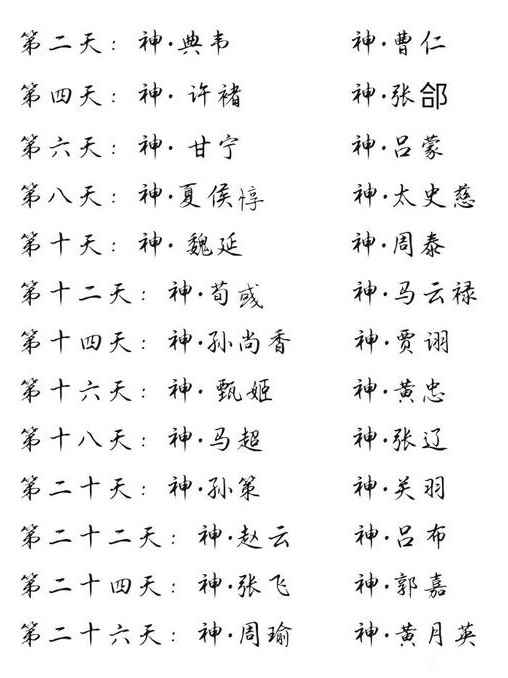 第二天：神·典韦 神·曹仁
第四天：神·许褚 神·张郃
第六天：神·甘宁 神·吕蒙
第八天：神·夏侯惇 神·太史慈
第十天：神·魏延 神·周泰
第十二天：神·荀彧 神·马云禄
第十四天：神·孙尚香 神·贾诩
第十六天：神·甄姬 神·黄忠
第十八天：神·马超 神·张辽
第二十天：神·孙策 神·关羽
第二十二天：神·赵云 神·吕布
第二十四天：神·张飞 神·郭嘉
第二十六天：神·周瑜 神·黄月英